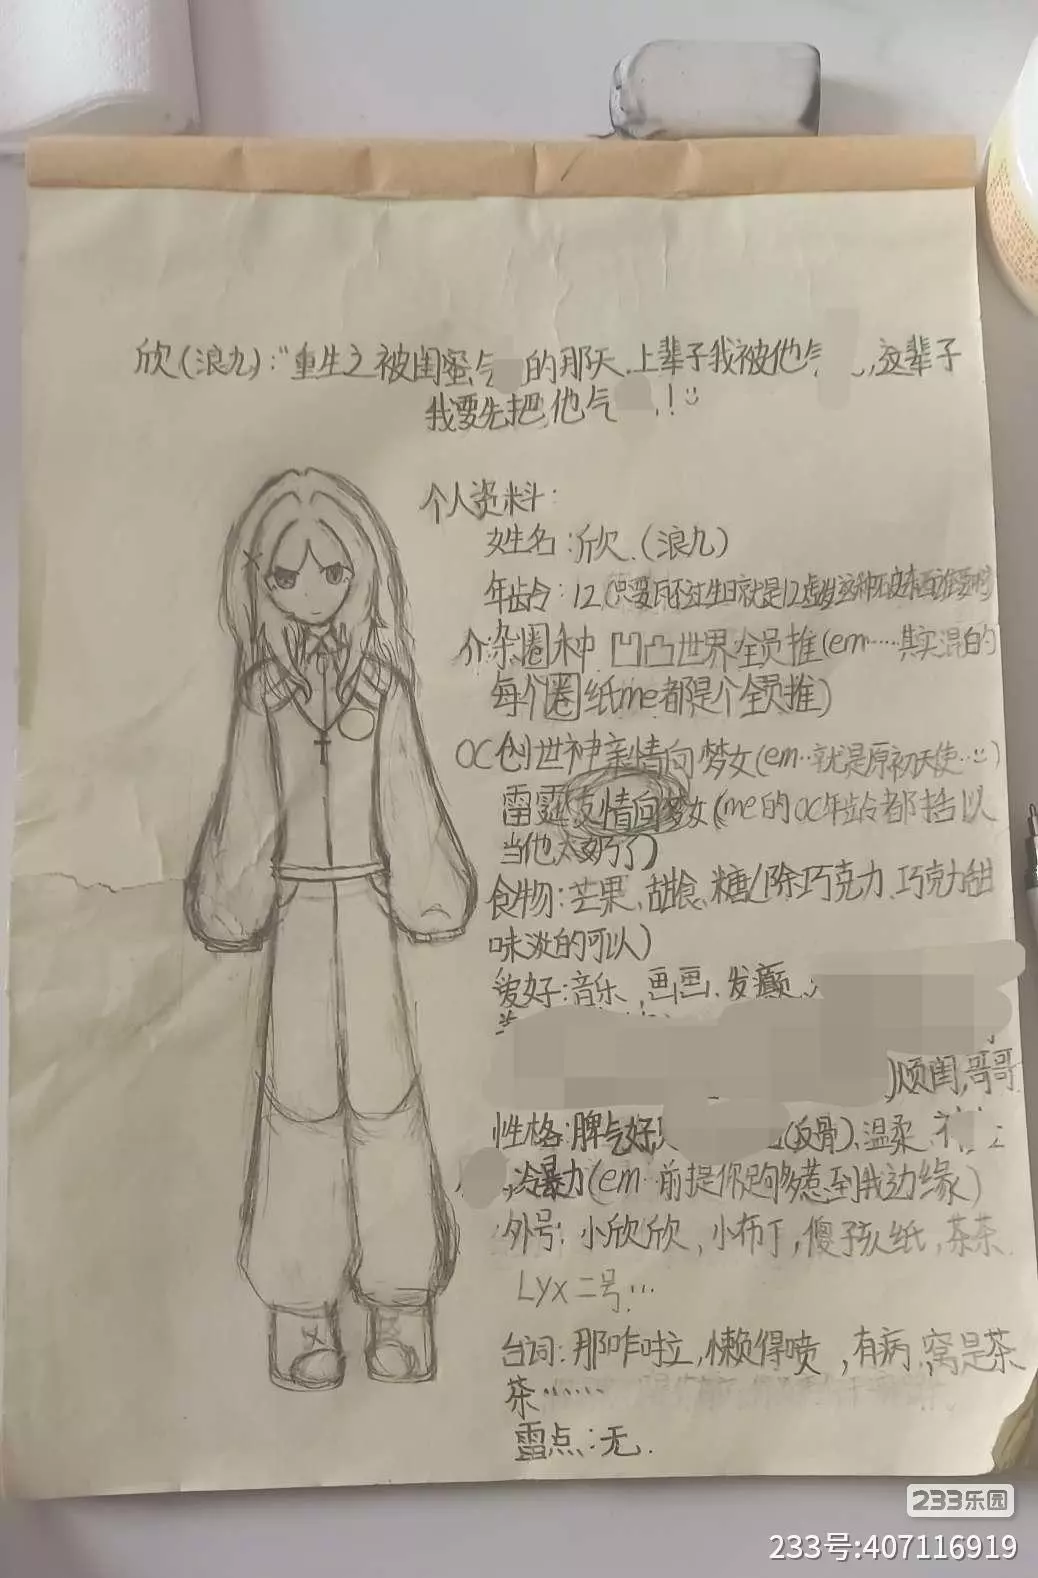 欣(浪九):"重生之被闺蜜气 的那天,上辈子我被他气 ,这辈子
我要先把他气 !
个人资料:
姓名:欣.(浪九)
年龄:12(只要瓦不过生日就是12虚岁这种
杂圈 凹凸世界全员推(em……其实混的
每个圈纸me都是个全员推)
OC创世神亲情向梦女(em…就是原初天使…)
雷霆友情向梦女(me的OC年龄都 以
当他太奶了)
食物:芒果、甜食、糖(除巧克力,巧克力甜
味淡的可以)
爱好:音乐,画画,发癫
烦闺,哥哥
性格:脾气好, (反骨),温柔
冷暴力(em…前提你足够惹到我边缘)
外号:小欣欣,小布丁,傻孩纸,茶茶.
Lyx二号…
台词:那咋啦,懒得喷,有病,窝是茶
茶……
雷点:无.
233乐园
233号:407116919